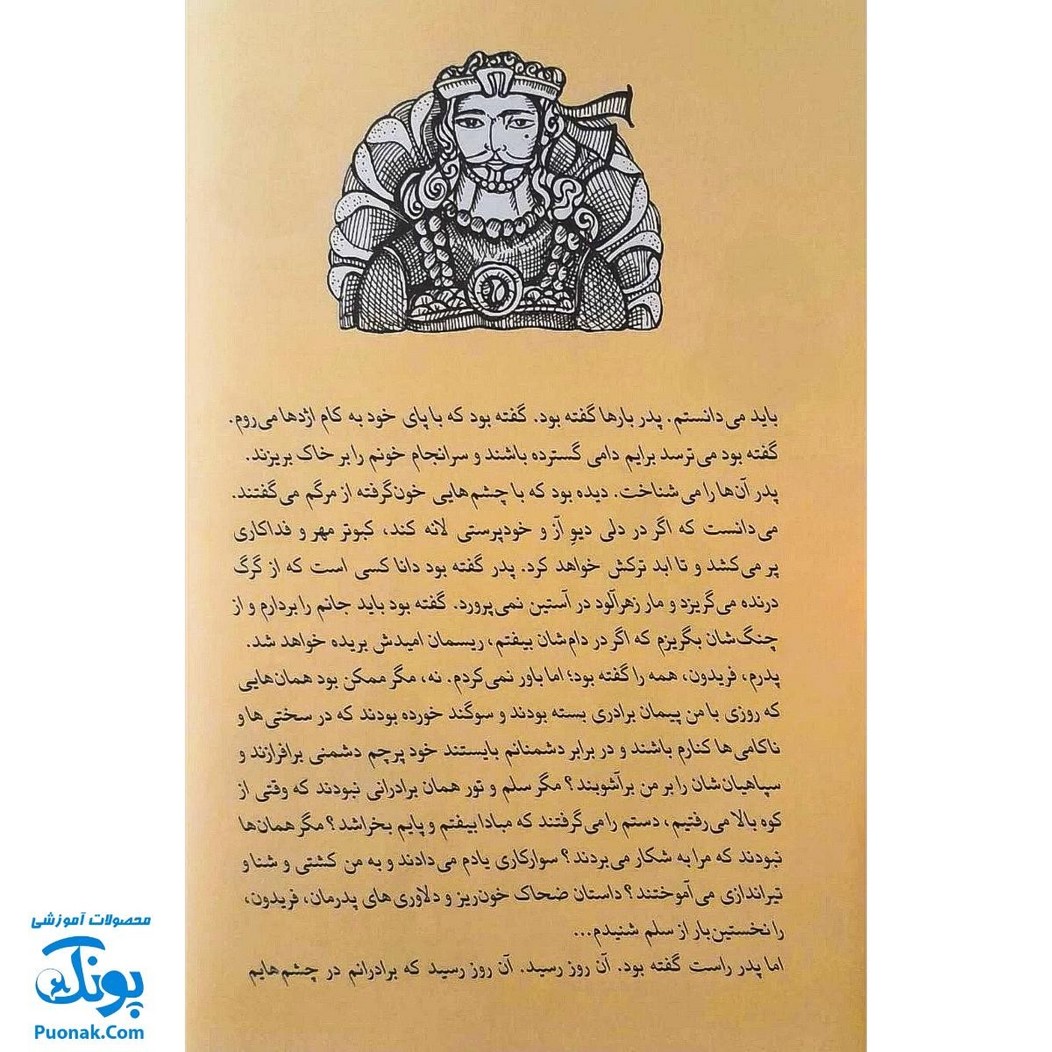 باید می‌دانستم. پدر بارها گفته بود. گفته بود که با پای خود به کام اژدها می‌روم.
گفته بود می‌ترسد برایم دامی گسترده باشند و سرانجام خونم را بر خاک بریزند.
پدر آن‌ها را می‌شناخت. دیده بود که با چشم‌هایی خون‌گرفته از مرگم می‌گفتند.
می‌دانست که اگر در دلی دیوِ آز و خودپرستی لانه کند، کبوتر مهر و فداکاری
پر می‌کشد و تا ابد ترکش خواهد کرد. پدر گفته بود دانا کسی است که از گرگ
درنده می‌گریزد و مار زهرآلود در آستین نمی‌پرورد. گفته بود باید جانم را بردارم و از
چنگ‌شان بگریزم که اگر در دام‌شان بیفتم، ریسمان امیدش بریده خواهد شد.
پدرم، فریدون، همه را گفته بود؛ اما باور نمی‌کردم. نه، مگر ممکن بود همان‌هایی
که روزی با من پیمان برادری بسته بودند و سوگند خورده بودند که در سختی‌ها و
ناکامی‌ها کنارم باشند و در برابر دشمنانم بایستند خود پرچم دشمنی برافرازند و
سپاهیان‌شان را بر من برآشوبند؟ مگر سلم و تور همان برادرانی نبودند که وقتی از
کوه بالا می‌رفتیم، دستم را می‌گرفتند که مبادا بیفتم و پایم بخراشد؟ مگر همان‌ها
نبودند که مرا به شکار می‌بردند؟ سوارکاری یادم می‌دادند و به من کشتی و شنا و
تیراندازی می‌آموختند؟ داستان ضحاک خون‌ریز و دلاوری‌های پدرمان، فریدون،
را نخستین‌بار از سلم شنیدم...
اما پدر راست گفته بود. آن روز رسید. آن روز رسید که برادرانم در چشم‌هایم
محصولات آموزشی
پونک
Puonak.Com